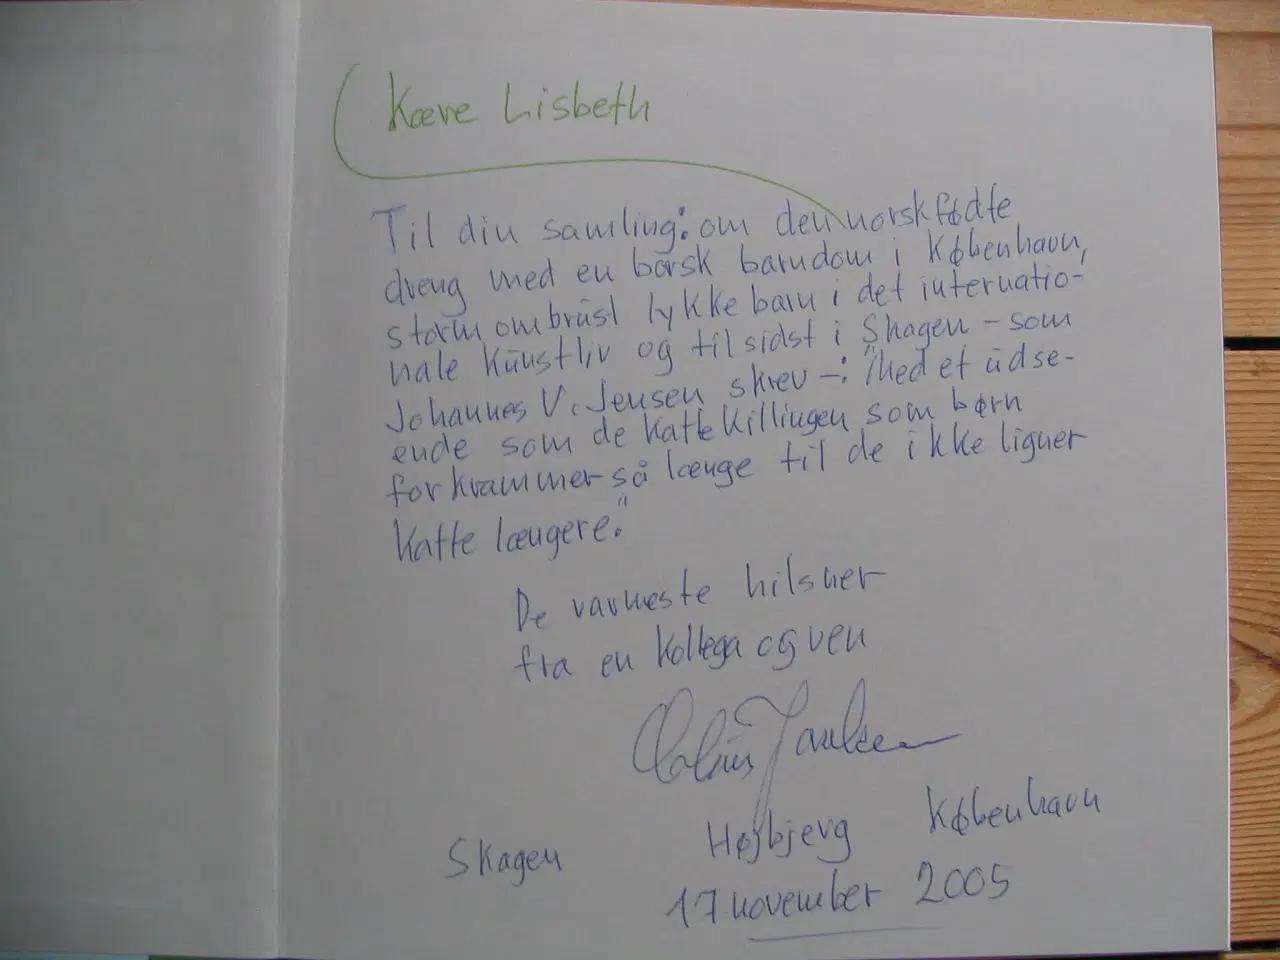 Kære Lisbeth
Til din samling: om den norskfødte
dreng med en barsk barndom i København,
stormombrust lykkebarn i det internatio-
nale kunstliv og til sidst i Skagen - som
Johannes V. Jensen skrev -: "Med et udse-
ende som de kattekillingen som børn
forkrammer så længe til de ikke ligner
katte længere."
De varmeste hilsner
fra en kollega og ven
Skagen Højbjerg København
17. november 2005